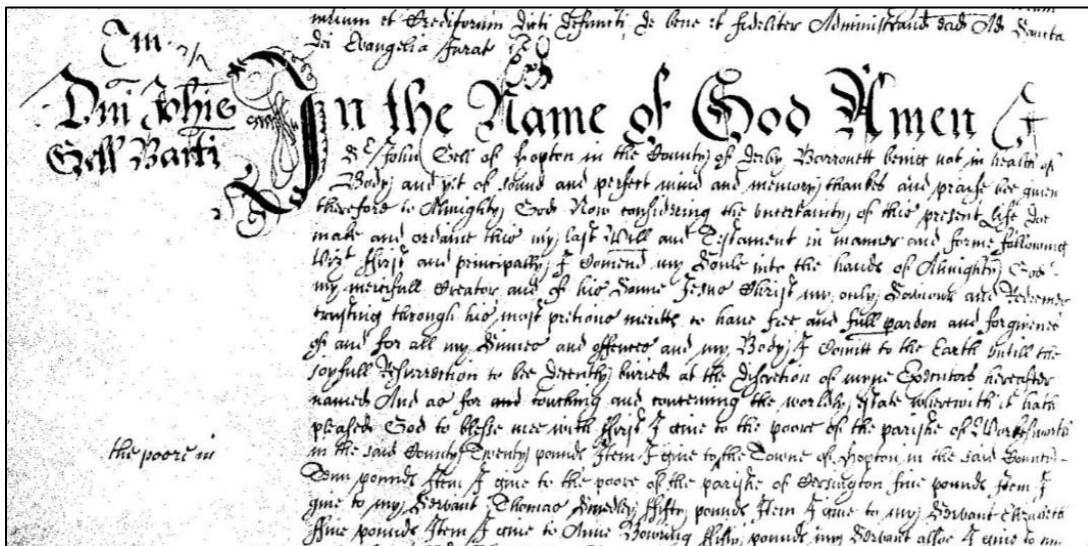 et Creditorum dicti defuncti de bene et fideliter Administrand Ad Sancta
dei Evangelia Jurat
Tm
Dni Johis
Gell Barti
In the Name of God Amen
I Sr John Gell of Hopton in the County of Derby Barronett being not in health of
Body and yet of sound and perfect mind and memory thankes and praise bee given
therefore to Almighty God Now considering the uncertainty of this present life doe
make and ordaine this my last Will and Testament in manner and forme following
vizt ffirst and principally I Comend my Soule into the hands of Almighty God
my mercifull Creator and of his Sonne Jesus Christ my only Saviour and Redeemer
trusting through his most pretious meritts to have free and full pardon and forgivenes
of and for all my Sinnes and offences and my Body I Comitt to the Earth untill the
joyfull Resurrection to bee decently buried at the discretion of myne Executors hereafter
named And as for and touching and concerning the worldly estate wherewith it hath
pleased God to blesse mee with ffirst I give to the poore of the parishe of Workesworth
the poore in
in the said County Twenty pounds Item I give to the Towne of Hopton in the said County
Tenn pounds Item I give to the poore of the parishe of Carsington five pounds Item I
give to my Servant Thomas Smedley ffifty pounds Item I give to my Servant Elizabeth
ffive pounds Item I give to Anne ffifty pounds my Servant alsoe I give to my